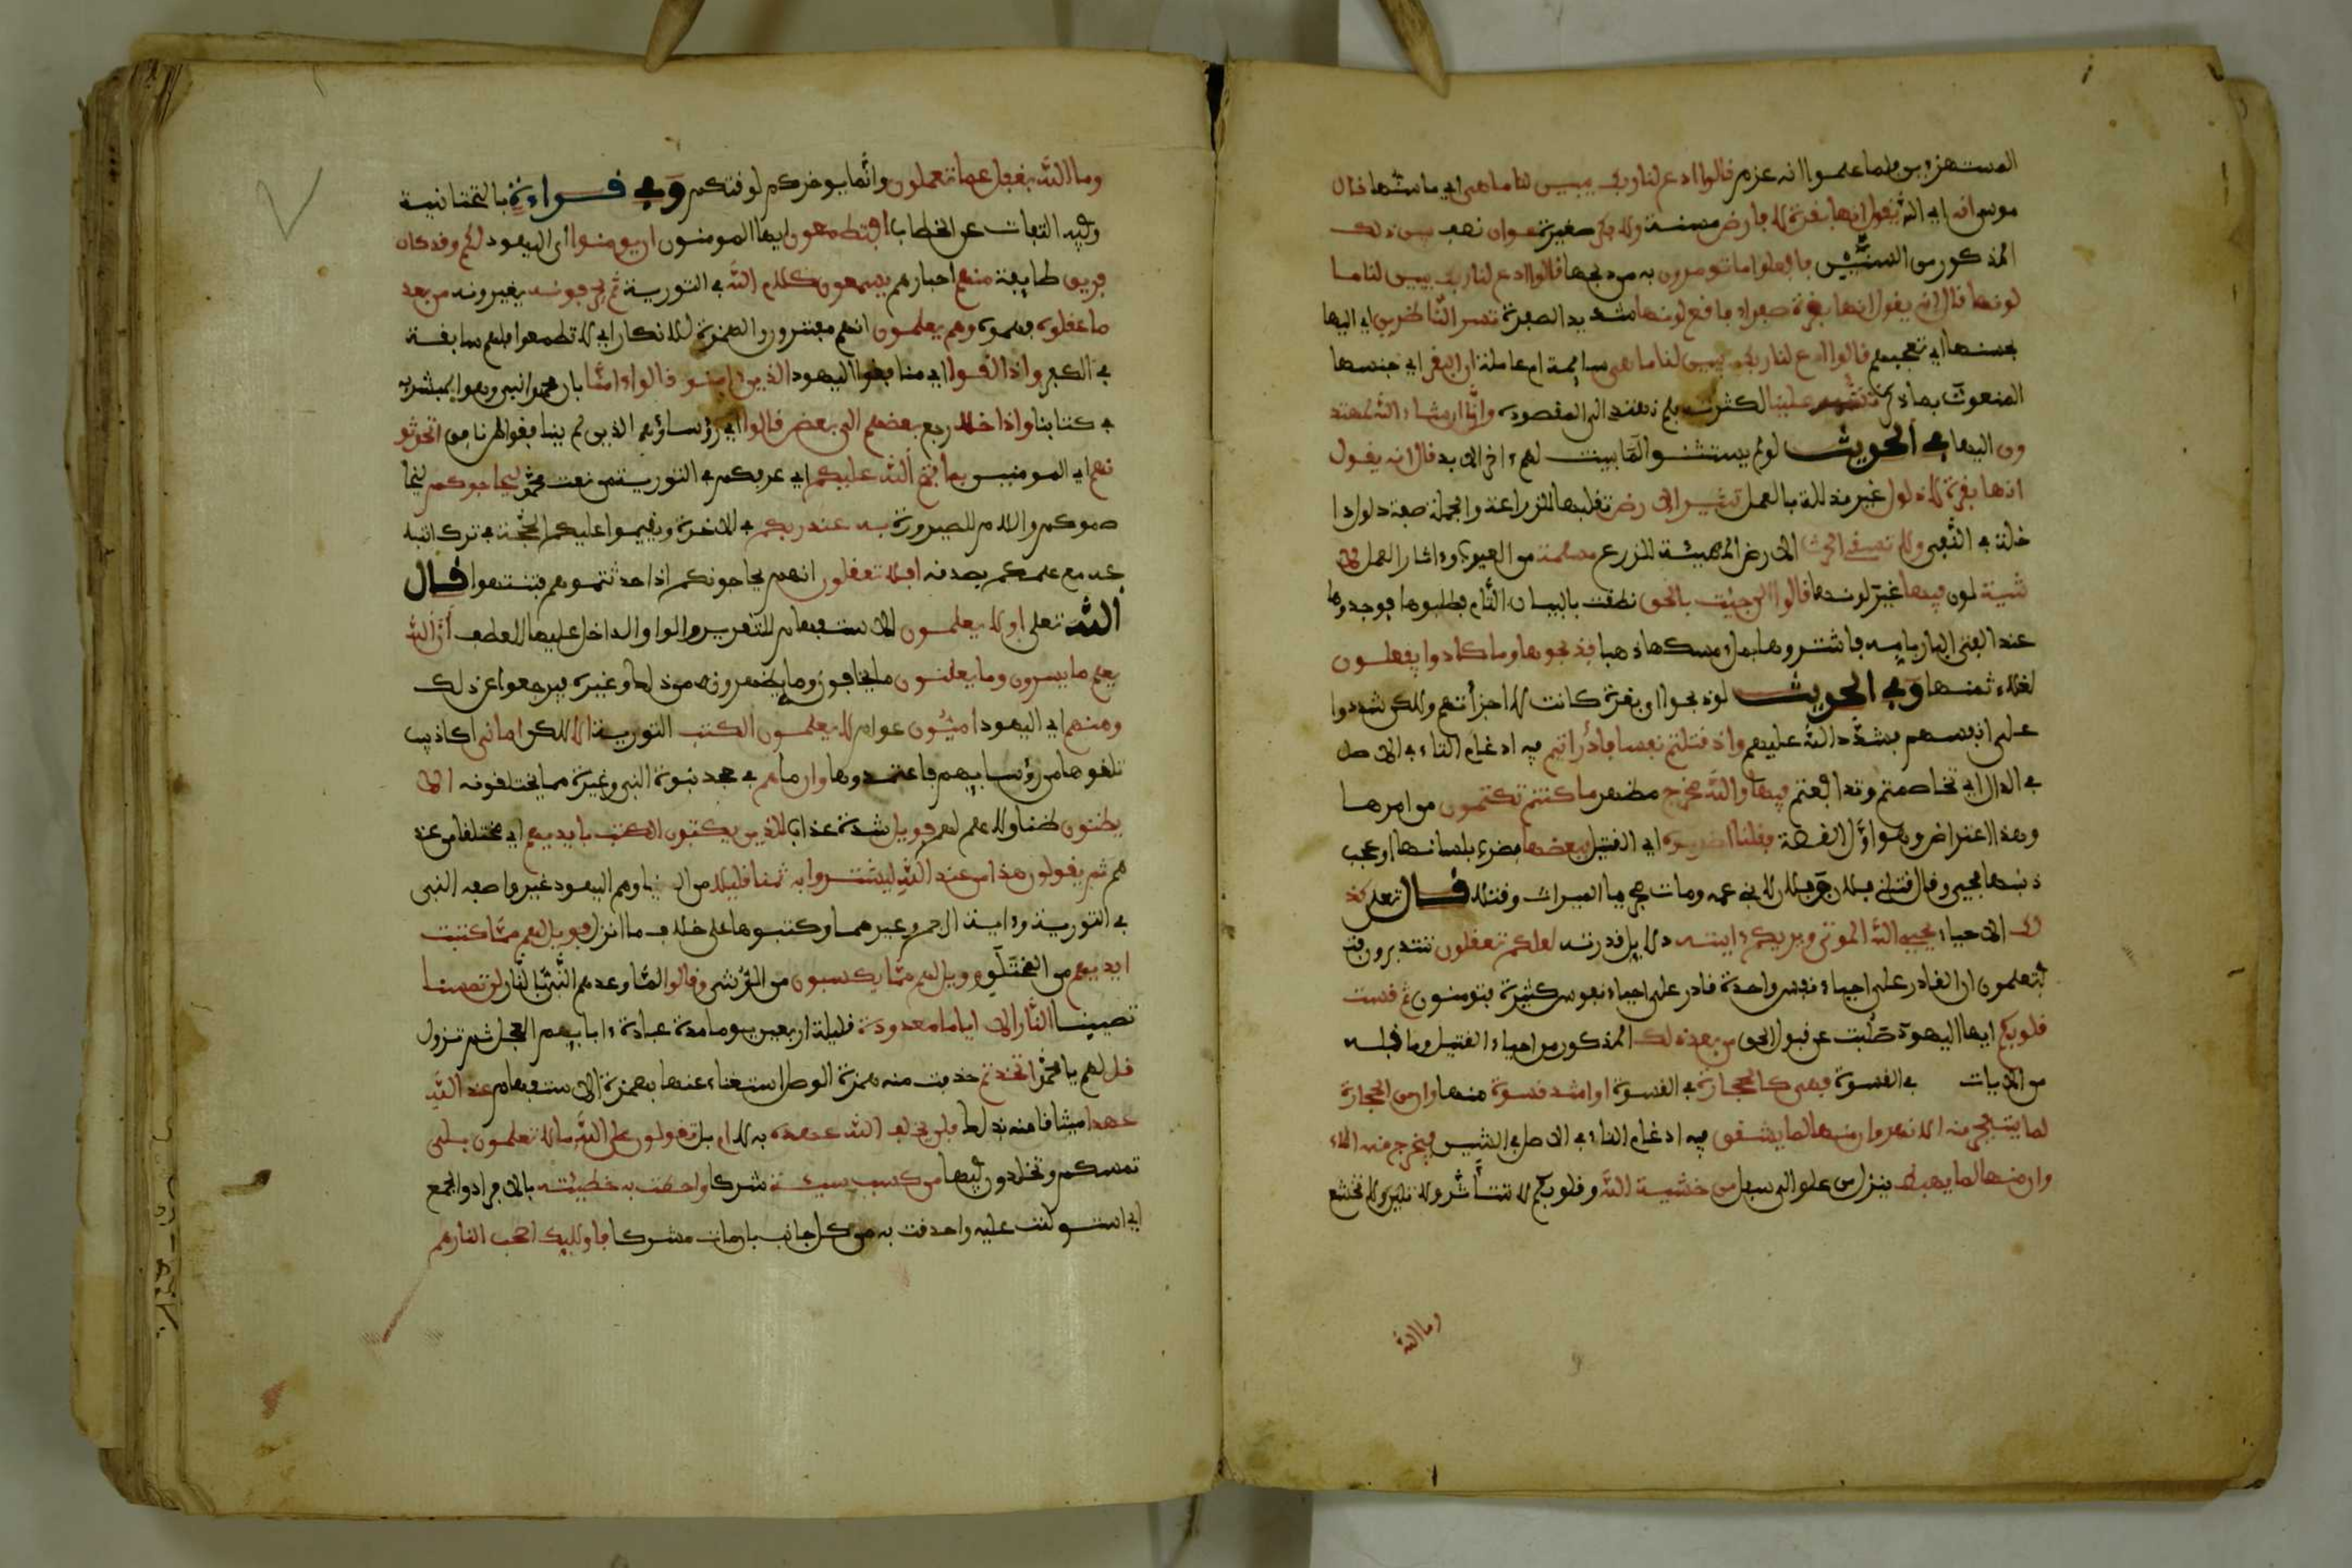 المستهزءين فلما علموا انه عزم فالوا ادع لنا ربك يبين لنا ما هى اي ما سنها فال
موسى انه اي الله يفول انها بفرة لا فارض مسنة ولا بكر صغيرة عوان نصف بين ذلك
المذكور من السنين فافعلوا ما تومرون به من ذبحها فالوا ادع لنا ربك يبين لنا ما
لونها فال انه يفول انها بفرة صفراء فافع لونها شديد الصفرة تسر الناظرين اي اليها
بحسنها اي تعجبهم فالوا ادع لنا ربك يبين لنا ما هى سايمة ام عاملة ان البفر اي جنسها
المنعوت بما ذكر تشبه علينا لكثرته فلم نهتد الى المفصودة وانا ان شاء الله لمهتد
ون اليها في الحديث لو لم يستثنوا لما بينت لهم ءاخر الابد فال انه يفول
انها بفرة لا ذلول غير مذللة بالعمل تثير الارض تفلبها للزراعة والجملة صفة ذلول دا
خلة في النهى ولا تسفى الحرث الارض المهيئة للزرع مسلمة من العيوب وءاثار العمل لا
شية لون فيها غير لونها فالوا الن جيت بالحق نطفت بالبيان التام فطلبوها فوجدوها
عند الفتى البار بامه فاشتروها بملء مسكها ذهبا فذبحوها وما كادوا يفعلون
لغلاء ثمنها وفي الحديث لو ذبحوا اي بفرة كانت لاجزاتهم ولكن شددوا
على انفسهم فشدد الله عليهم واذ فتلتم نفسا فادارأتم فيه ادغام التاء في الاصل
في الدال اي تخاصمتم وتدافعتم فيها والله مخرج مظهر ما كنتم تكتمون من امرها
وهذا اعتراض وهو اول الفصة ففلنا اضربوه اي الفتيل ببعضها فضرب بلسانها او عجب
ذنبها فحيي وفال فتلني فلان وفلان لابني عمه ومات فحرما الميراث وفتلا فال تعلى كذ
لك الاحياء يحيي الله الموتى ويريكم ءايته دلايل فدرته لعلكم تعفلون تتدبرون فت
فتعلمون ان الفادر على احياء نفس واحدة فادر على احياء نفوس كثيرة فتومنون ثم فست
فلوبكم ايها اليهود صلبت عن فبول الحق من بعد ذلك المذكور من احياء الفتيل وما فبله
من الايات في الفسوة فهى كالحجارة في الفسوة او اشد فسوة منها وان من الحجارة
لما يتفجر منه الانهر وان منها لما يشفق فيه ادغام التاء في الاصل في الشين فيخرج منه الماء
وان منها لما يهبط ينزل من علو الى سفل من خشية الله وفلوبكم لا تتأثر ولا تلين ولا تخشع
وما الله
وما الله بغفل عما تعملون وانما يوخركم لوفتكم وفي فراءة بالتحتانية
وفيه التفات عن الخطاب افتطمعون ايها المومنون ان يومنوا اي اليهود لكم وفد كان
فريق طايفة منهم احبارهم يسمعون كلام الله في التورية ثم يحرفونه يغيرونه من بعد
ما عفلوه فهموه وهم يعلمون انهم مفترون والهمزة للانكار اي لا تطمعوا فلهم سابفة
في الكفر واذا لفوا اي منافقوا اليهود الذين ءامنوا فالوا ءامنا بان محمدا نبي وهو المبشر به
في كتابنا واذا خلا رجع بعضهم الى بعض فالوا اي رؤساؤهم الذين لم ينافقوا لمن نافق اتحدثو
نهم اي المومنين بما فتح الله عليكم اي عرفكم في التورية من نعت محمد ليحاجوكم ليخا
صموكم واللام للصيرورة به عند ربكم في الاخرة ويفيموا عليكم الحجة في ترك اتبا
عه مع علمكم بصدفه افلا تعفلون انهم يحاجونكم اذا حدثتموهم فتنتهوا فال
الله تعلى اولا يعلمون الاستفهام للتقرير والواو الداخل عليها للعطف أن الله
يعلم ما يسرون وما يعلنون ما يخفون وما يظهرون من ذلك وغيره فيرجعوا عن ذلك
ومنهم اي اليهود اميون عوام لا يعلمون الكتب التورية الا لكن امانى اكاذيب
تلفوها من رؤسايهم فاعتمدوها وان ما هم في جحد نبوة النبي وغيره مما يختلفونه الا
يظنون ظنا ولا علم لهم فويل شدة عذاب للذين يكتبون الكتب بايديهم اي مختلفا من عند
هم ثم يفولون هذا من عند الله ليشتروا به ثمنا فليلا من الدنيا وهم اليهود غيروا صفة النبى
في التورية وءاية الرجم وغيرهما وكتبوها على خلاف ما انزل فويل لهم مما كتبت
ايديهم من المختلق وويل لهم مما يكسبون من الرشى وفالوا لما وعدهم النبي النار لن تمسنا
تصيبنا النار الا اياما معدودة فليلة اربعين يوما مدة عبادة ءابايهم العجل ثم تزول
فل لهم يا محمد اتخذتم حذفت منه همزة الوصل استغناء عنها بهمزة الاستفهام عند الله
عهدا ميثافا منه بذلك فلن يخلف الله عهده به لا ام بل تفولون على الله ما لا تعلمون بلى
تمسكم وتخلدون فيها من كسب سيئة شركا واحطت به خطيئته بالافراد والجمع
اي استولت عليه واحدفت به من كل جانب بان مات مشركا فاوليك اصحب النار هم